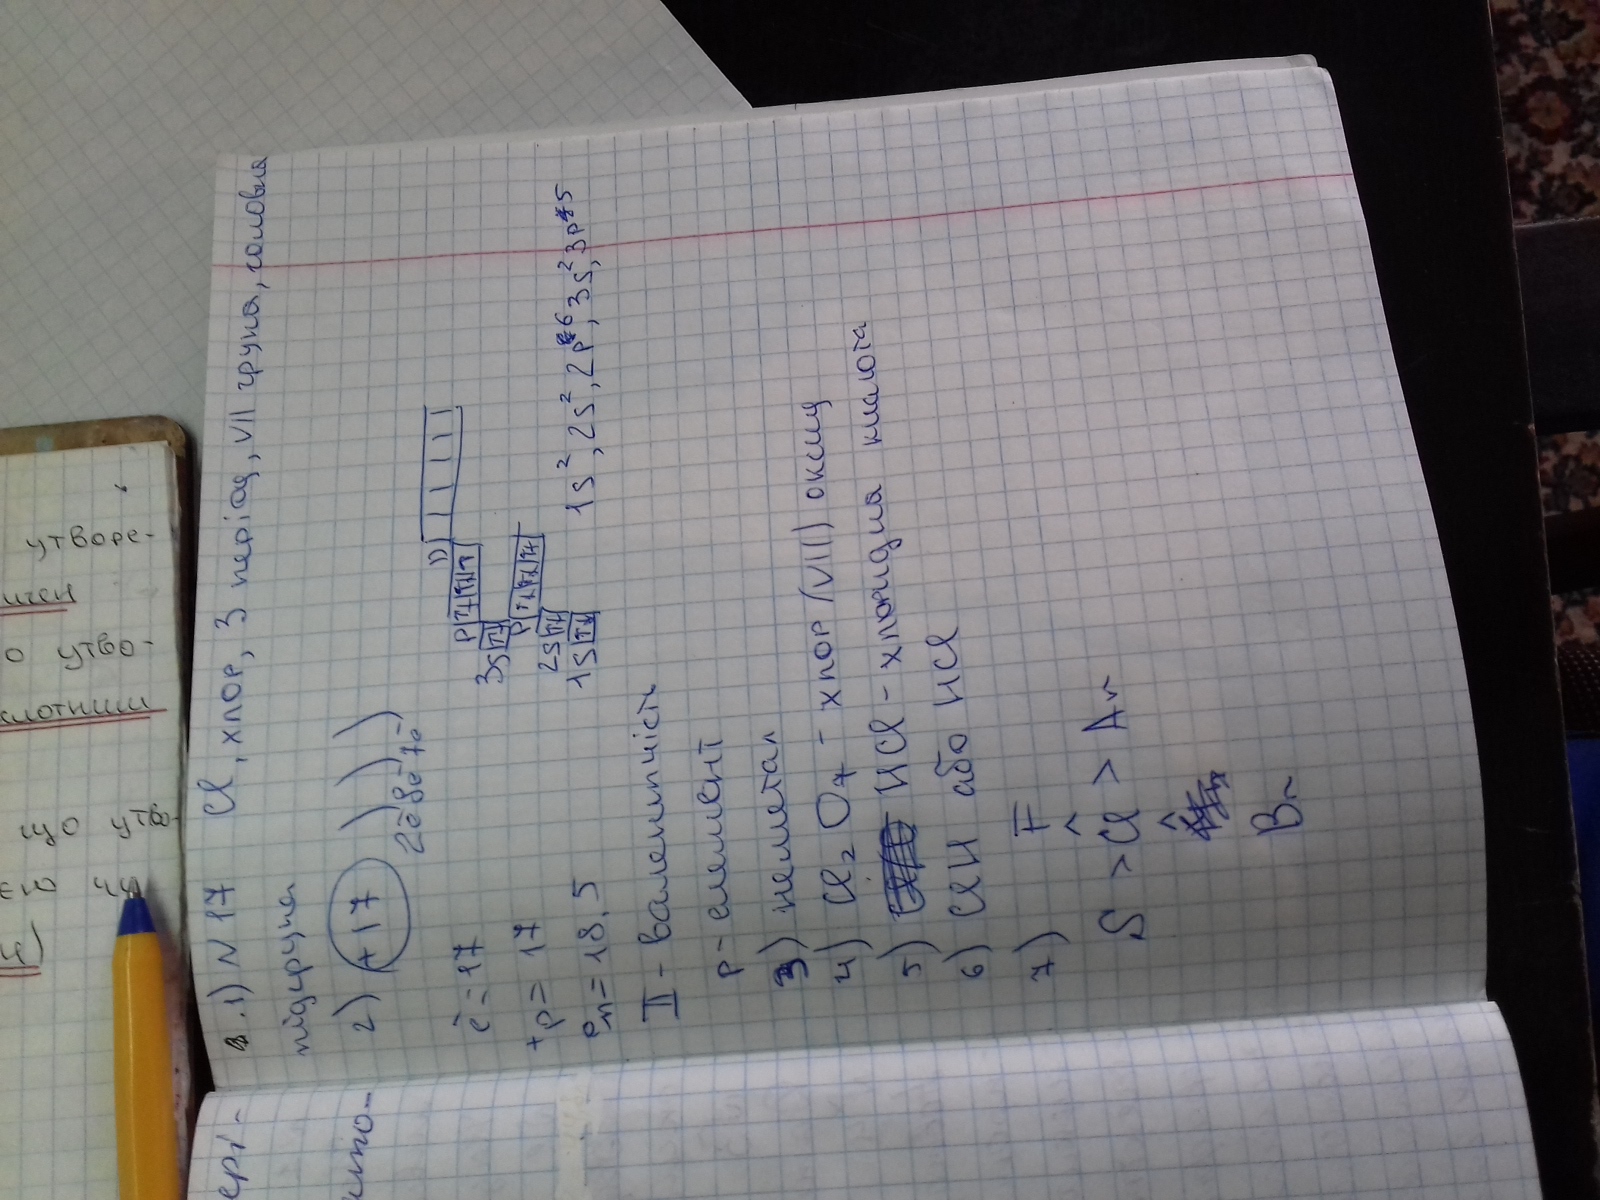 1) N 17 Cl, хлор, 3 період, VII група, головна
підгрупа
2) +17 ) ) )
2ē 8ē 7ē
ē = 17
+p = 17
°n = 18,5
p D
3S
p
2S
1S
1S², 2S², 2p⁶, 3S², 3p⁵
II - валентність
p - елемент
3) неметал
4) Cl₂O₇ - хлор (VII) оксид
5) HCl - хлоридна кислота
6) ClH або HCl
7) F
^
S > Cl > Ar
^
Br
утворе-
о утво-
слотним
що утво-
єю
ері-